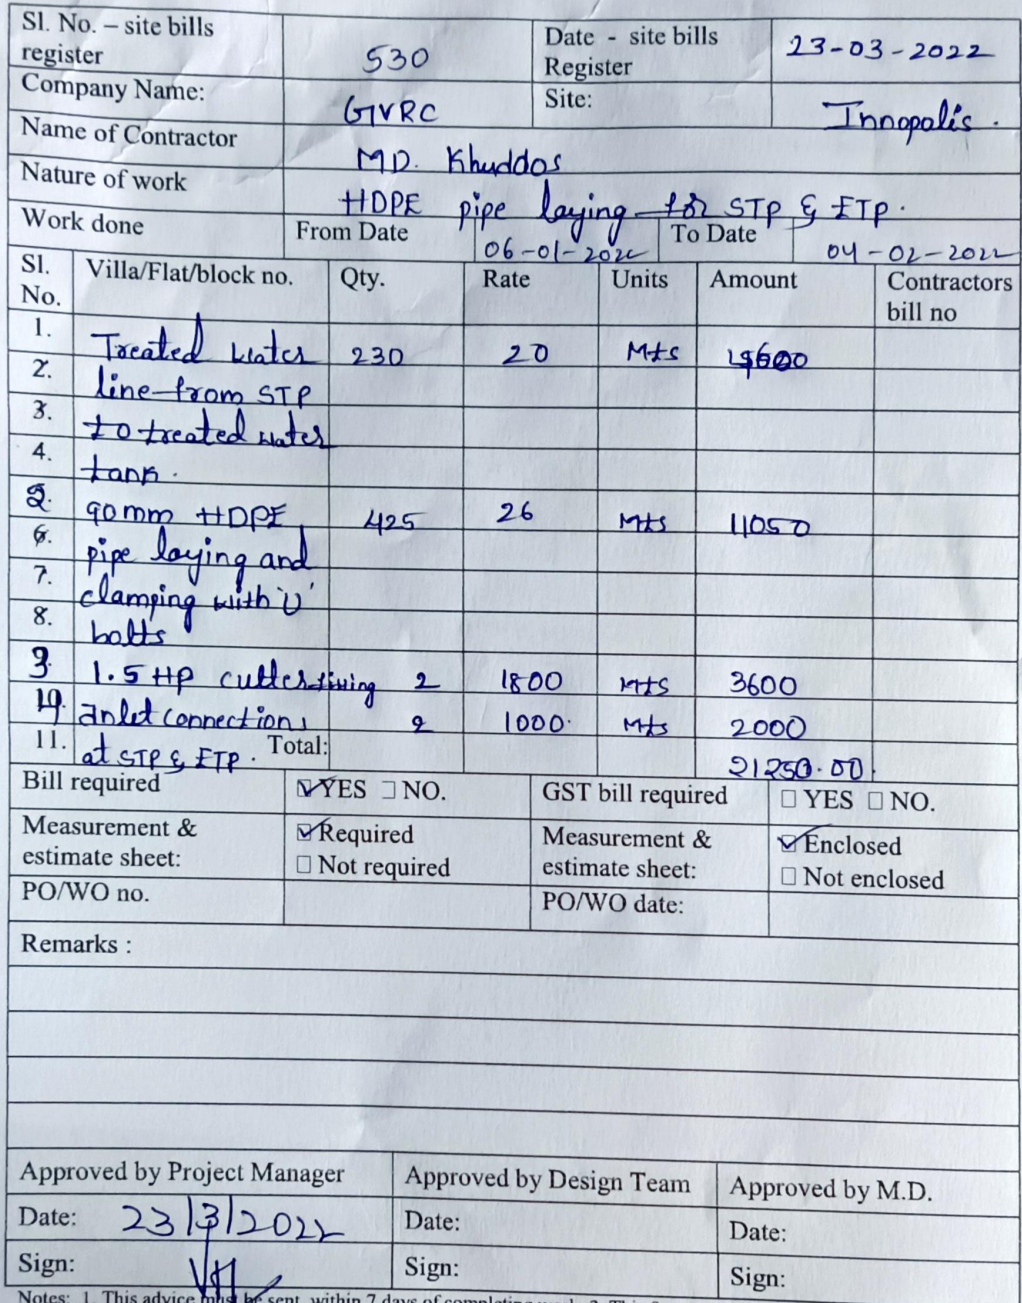 Sl. No. – site bills register 530 Date - site bills Register 23-03-2022
Company Name: GVRC Site: Innopolis.
Name of Contractor MD. Khuddos
Nature of work HDPE pipe laying for STP & ETP.
Work done From Date 06-01-2022 To Date 04-02-2022
Sl. No. Villa/Flat/block no. Qty. Rate Units Amount Contractors bill no
1. Treated water 230 20 Mts 4600
2. line from STP
3. to treated water
4. tank.
2. 90mm HDPE 425 26 Mts 11050
6. pipe laying and
7. clamping with 'U'
8. bolts
3. 1.5 HP cutter fixing 2 1800 Mts 3600
10. Inlet connections 2 1000 Mts 2000
11. at STP & ETP. Total: 21250.00.
Bill required ☑ YES ☐ NO. GST bill required ☐ YES ☐ NO.
Measurement & estimate sheet: ☑ Required ☐ Not required Measurement & estimate sheet: ☑ Enclosed ☐ Not enclosed
PO/WO no. PO/WO date:
Remarks :
Approved by Project Manager Approved by Design Team Approved by M.D.
Date: 23/3/2022 Date: Date:
Sign: Sign: Sign:
Notes: 1. This advice must be sent within 7 days of